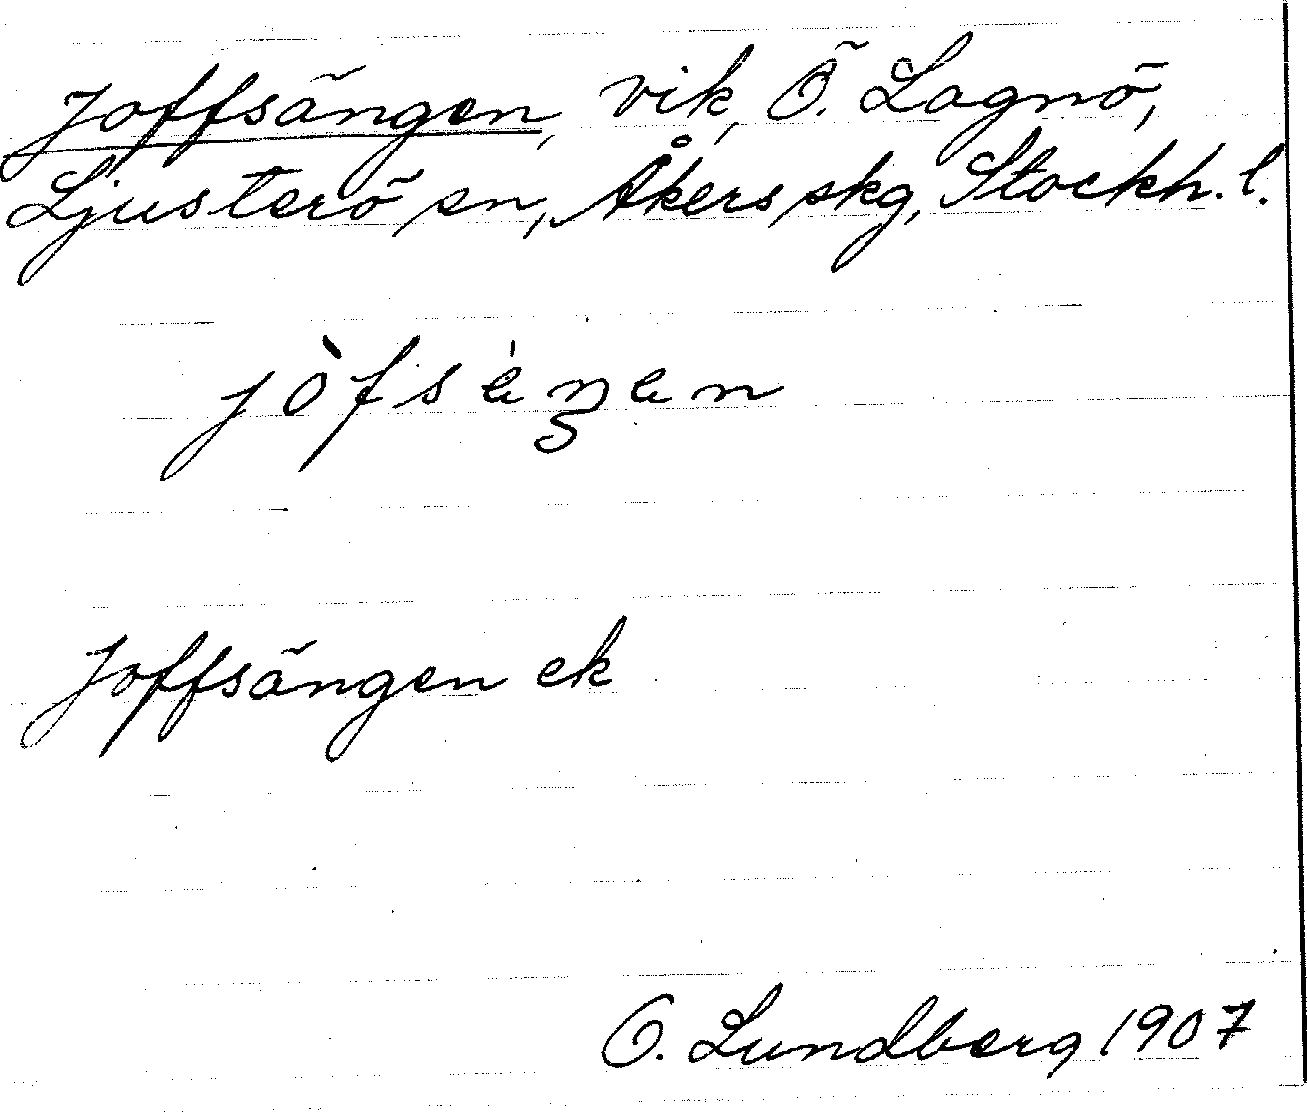 Joffsängen, vik, Ö. Lagnö,
Ljusterö sn, Åkers skg, Stockh. l.
jòfsèŋen
Joffsängen ek
O. Lundberg 1907